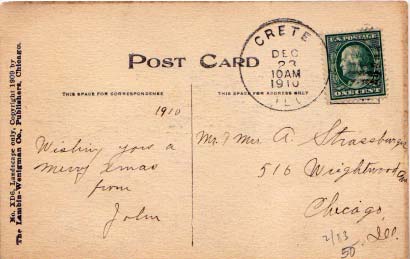 No. XD6, Landscape only, Copyright 1909 by
The Lambin-Wenigman Co., Publishers, Chicago.
POST CARD
THIS SPACE FOR CORRESPONDENCE
THIS SPACE FOR ADDRESS ONLY
CRETE
DEC
23
10AM
1910
ILL
U.S. POSTAGE
ONE CENT
1910
Wishing you a
merry Xmas
from
John
Mr. & Mrs A. Strassburger
516 Wrightwood Ave
Chicago,
Ill.
2/13
50